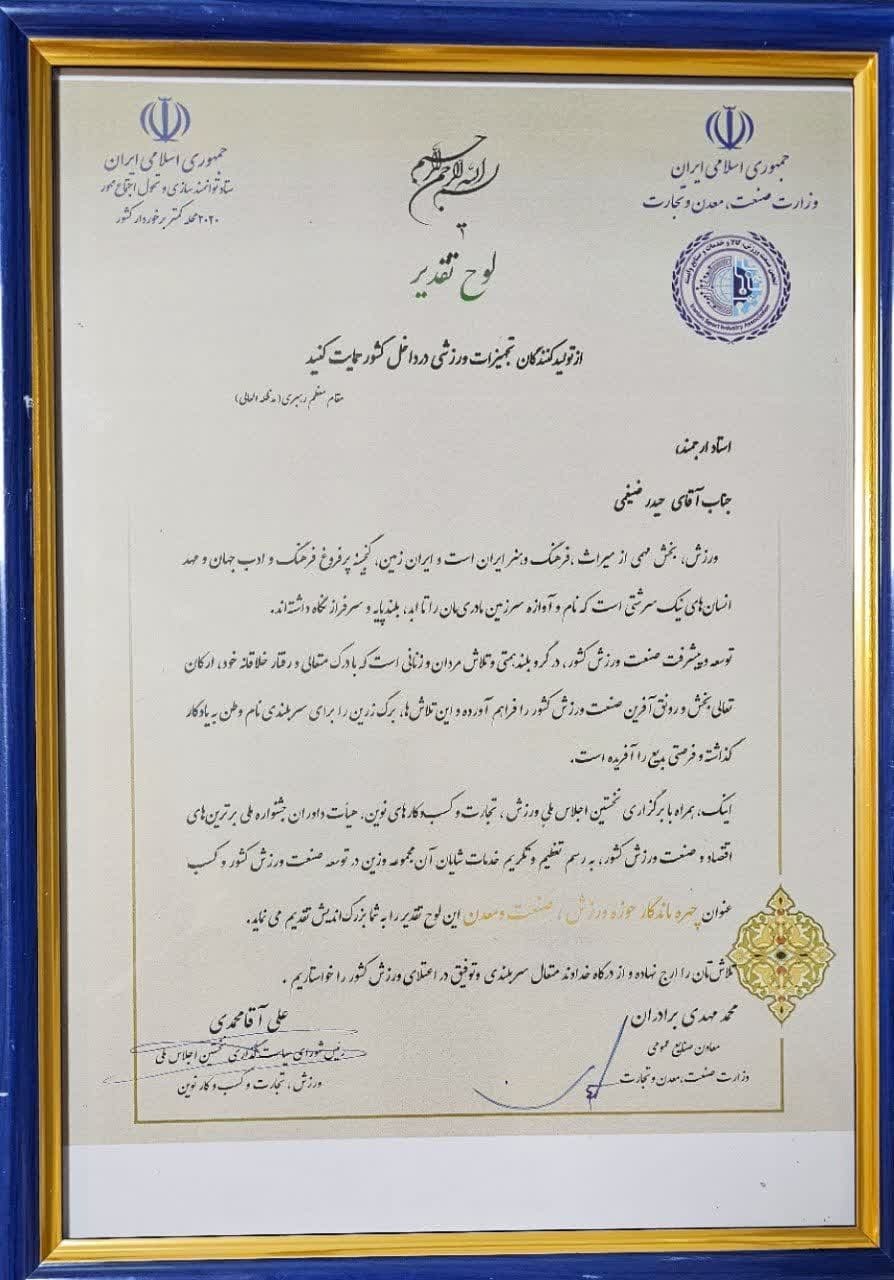 جمهوری اسلامی ایران
وزارت صنعت، معدن و تجارت
انجمن صنعت ورزش، کالا و خدمات و صنایع وابسته
Iranian Sport Industry Association
بسم الله الرحمن الرحیم
جمهوری اسلامی ایران
ستاد توانمندسازی و تحول اجتماع محور
۲۰۲۰ محله کمتر برخوردار کشور
لوح تقدیر
از تولیدکنندگان تجهیزات ورزشی در داخل کشور حمایت کنید
مقام معظم رهبری (مدظله العالی)
استاد ارجمند،
جناب آقای حیدر ضیغمی
ورزش، بخش مهمی از میراث، فرهنگ و هنر ایران است و ایران زمین، گنجینه پرفروغ فرهنگ و ادب جهان و مهد
انسان‌های نیک سرشتی است که نام و آوازه سرزمین مادری‌مان را تا ابد، بلندپایه و سرفراز نگاه داشته‌اند.
توسعه و پیشرفت صنعت ورزش کشور، در گرو بلندهمتی و تلاش مردان و زنانی است که با درک متعالی و رفتار خلاقانه خود، ارکان
تعالی بخش و رونق آفرین صنعت ورزش کشور را فراهم آورده و این تلاش‌ها، برگ زرین را برای سربلندی نام وطن به یادگار
گذاشته و فرصتی بدیع را آفریده است.
اینک، همراه با برگزاری نخستین اجلاس ملی ورزش، تجارت و کسب‌وکارهای نوین، هیأت داوران جشنواره ملی برترین‌های
اقتصاد و صنعت ورزش کشور، به رسم تعظیم و تکریم خدمات شایان آن مجموعه وزین در توسعه صنعت ورزش کشور و کسب
عنوان چهره ماندگار حوزه ورزش، صنعت و معدن این لوح تقدیر را به شما بزرگ‌اندیش تقدیم می نماید.
تلاش‌تان را ارج نهاده و از درگاه خداوند متعال سربلندی و توفیق در اعتلای ورزش کشور را خواستاریم.
محمد مهدی برادران
معاون صنایع عمومی
وزارت صنعت، معدن و تجارت
علی آقامحمدی
رئیس شورای سیاست گذاری نخستین اجلاس ملی
ورزش، تجارت و کسب و کار نوین